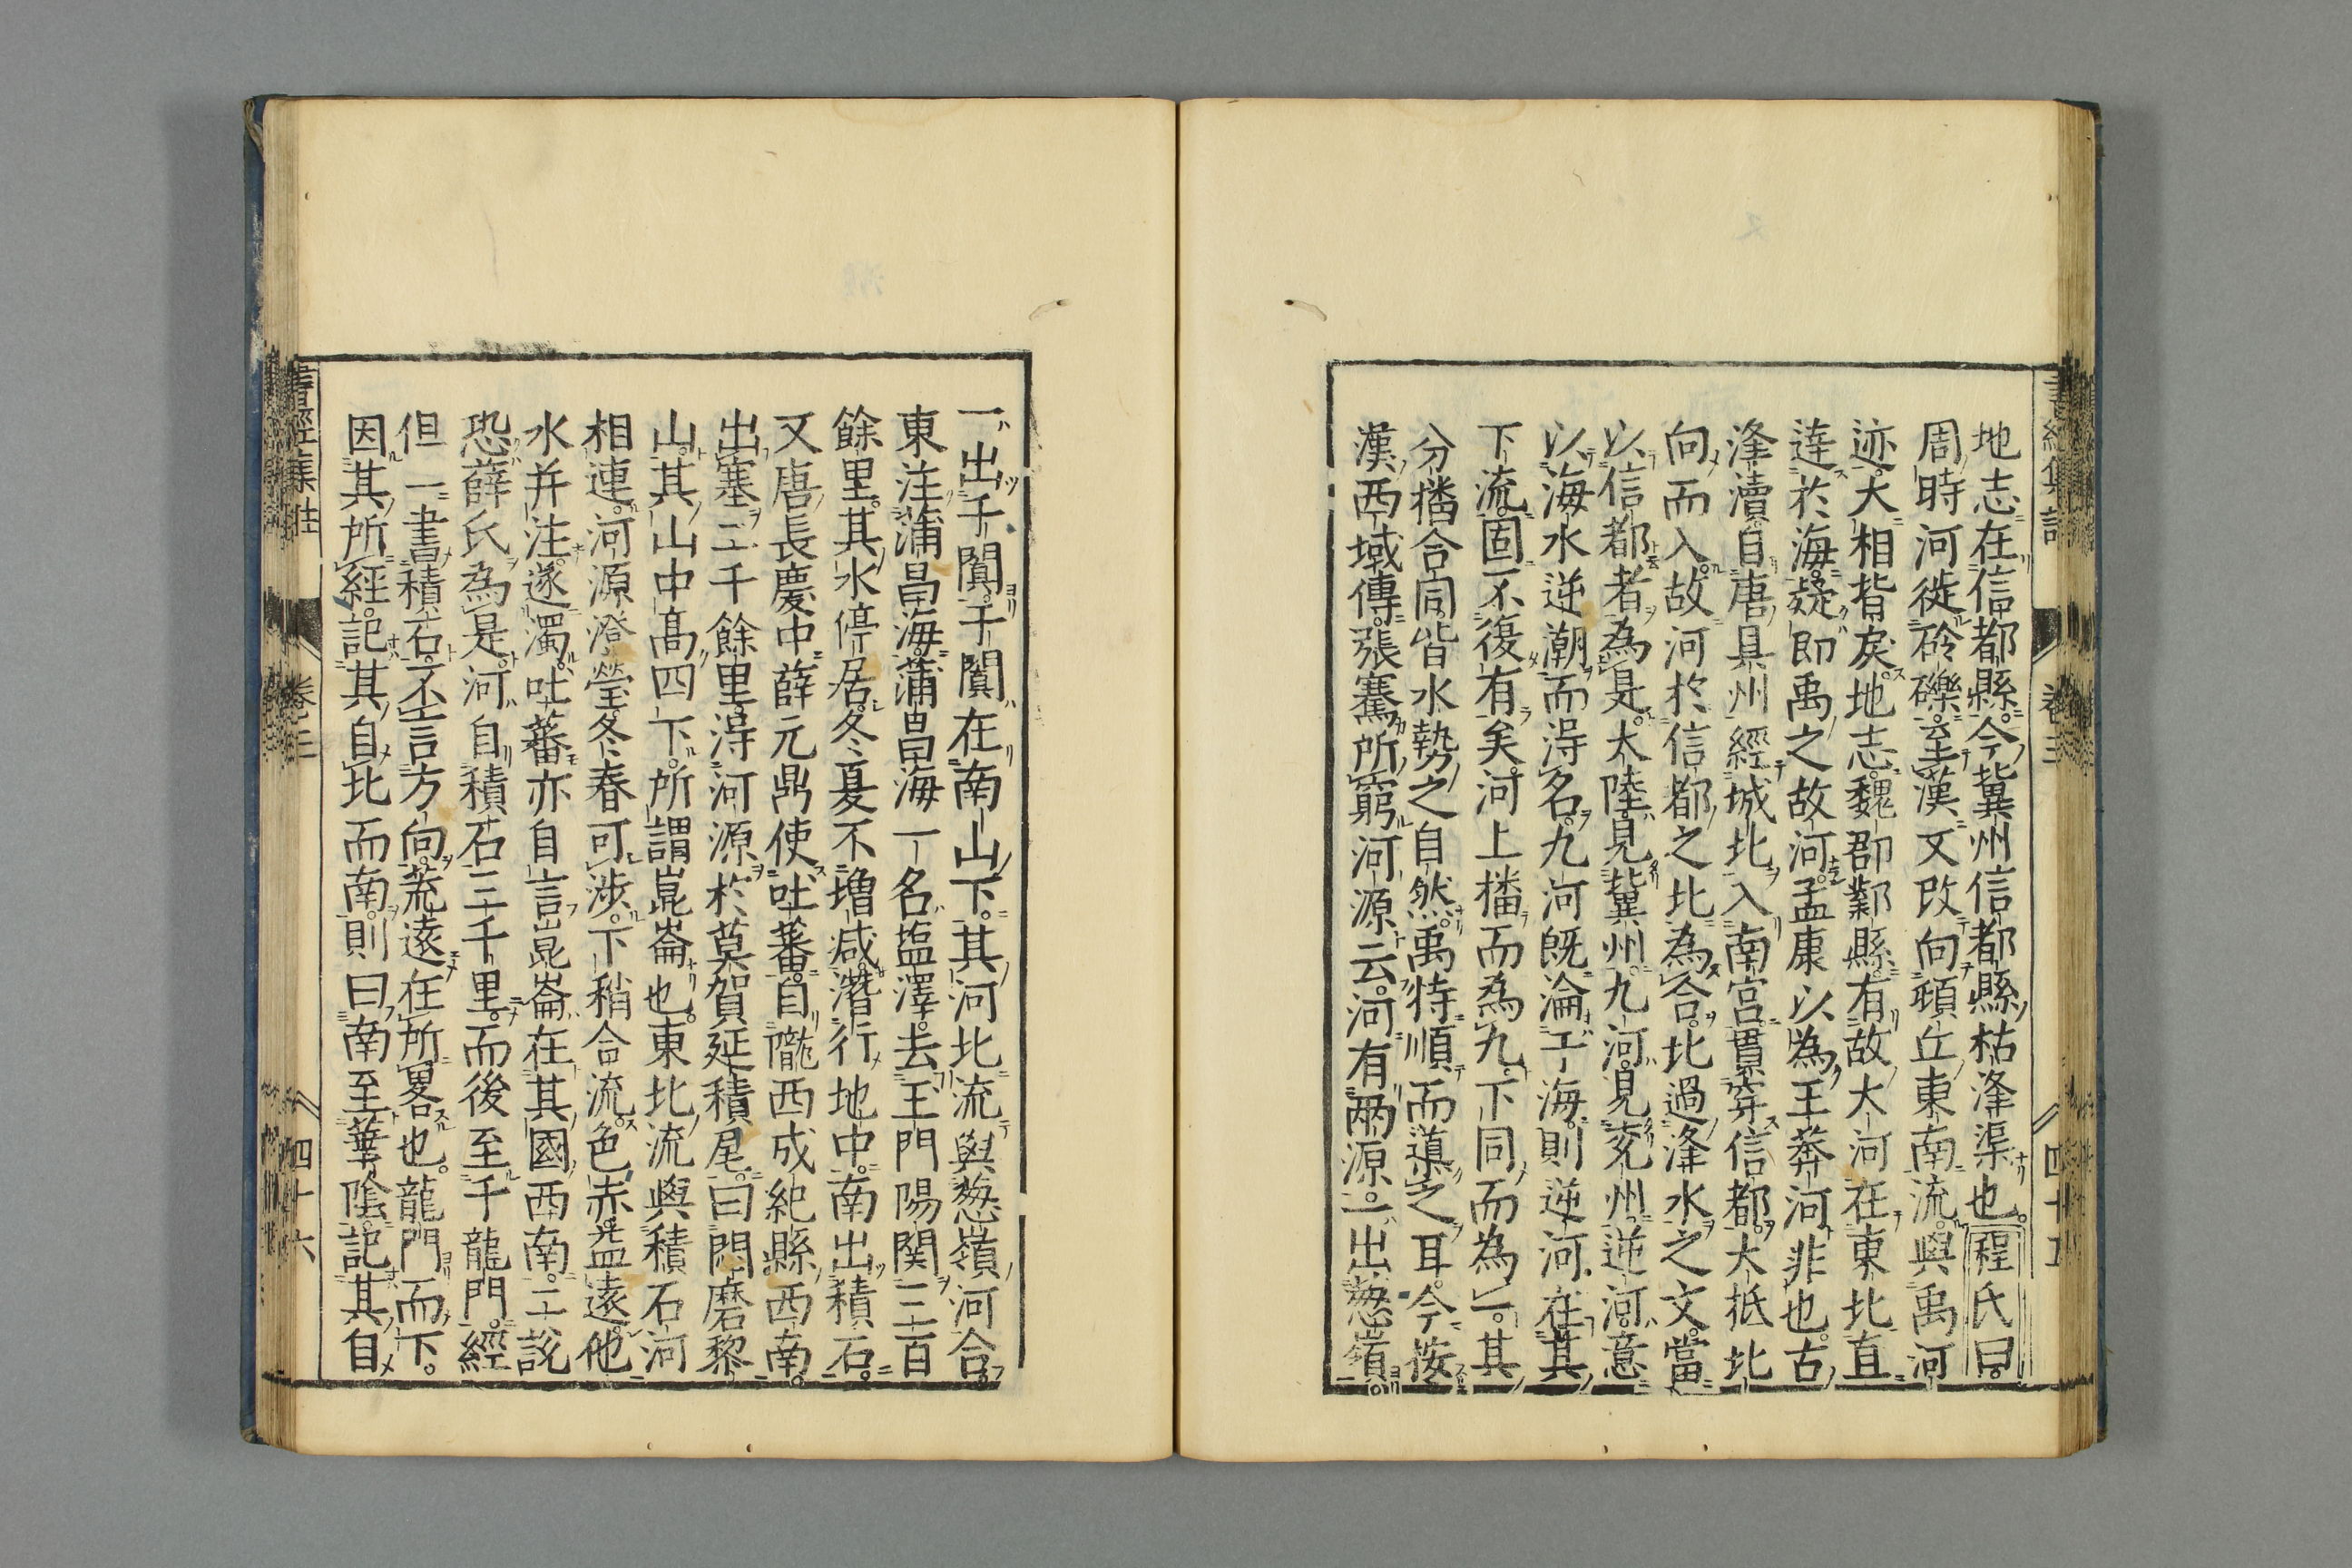 地志在信都縣今冀州信都縣枯洚渠也程氏曰
周時河徙砱礫至漢又改向頓丘東南流與禹河
迹大相背戾地志魏郡鄴縣有故大河在東北直
達於海疑即禹之故河孟康以為王莽河非也古
洚瀆自唐具州經城北入南宮貫穿信都大抵北
向而入故河於信都之北為合北過洚水之文當
以信都者為是大陸見冀州九河見兗州逆河意
以海水逆潮而淂名九河既淪于海則逆河在其
下流固不復有矣河上播而為九下同而為一其
分播合同皆水勢之自然禹特順而導之耳今按
漢西域傳張騫所窮河源云河有兩源一出葱嶺
書經集註
卷三
四十五
一出于闐于闐在南山下其河北流與葱嶺河合
東注蒲昌海蒲昌海一名塩澤去玉門陽関三百
餘里其水停居冬夏不增减潛行地中南出積石
又唐長慶中薛元鼎使吐蕃自隴西成紀縣西南
出塞二千餘里淂河源於莫賀延積尾曰悶磨黎
山其山中高四下所謂崑崙也東北流與積石河
相連河源澄瑩冬春可涉下稍合流色赤益遠他
水并注遂濁吐蕃亦自言崑崙在其國西南二說
恐薛氏為是河自積石三千里而後至于龍門經
但一書積石不言方向荒遠在所畧也龍門而下
因其所經記其自北而南則曰南至華隂記其自
書經集註
卷三
四十六